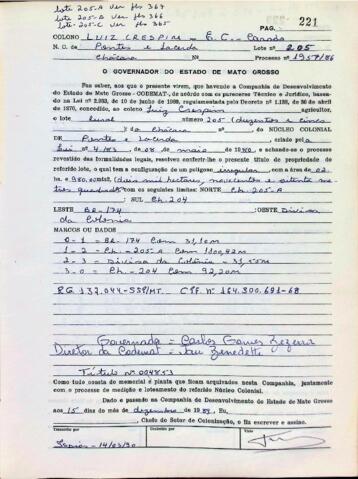 lote 205-A ver fls 364
lote 205-B ver fls 366
lote 205-C ver fls 365
PAG. 221
COLONO LUIZ CRESPIM - C.C. Casado
N. C. de Pontes e Lacerda Lote nº 205
Chácara Processo nº 1957/86
O GOVERNADOR DO ESTADO DE MATO GROSSO
Faz saber, aos que o presente virem, que havendo a Companhia de Desenvolvimento
do Estado de Mato Grosso - CODEMAT-, de acôrdo com os pareceres Técnico e Jurídico, basea-
do na Lei nº 2.033, de 10 de junho de 1969, regulamentada pelo Decreto nº 1.138, de 30 de abril
de 1970, concedido, ao colono Luiz Crespim agricultor,
o lote rural número 205 (duzentos e cinco
) da Chácara do NÚCLEO COLONIAL
DE Pontes e Lacerda, criado pela
Lei nº 4/83 de 08 de maio de 1980, e achando-se o processo
revestido das formalidades legais, resolveu conferir-lhe o presente título de propriedade do
referido lote, o qual tem a configuração de um polígono irregular com a área de 02.
ha e 980,00m2, (dois mil hectares, novecentos e oitenta me
tros quadrados com os seguintes limites: NORTE Ch. 205-A
: SUL Ch. 204
LESTE BR-174 :OESTE Divisa
da Colônia
MARCOS OU DADOS
0 - 1 = BR-174 Com 31,10m
1 - 2 = Ch - 205-A Com 100,42m
2 - 3 = Divisa da Colônia - 31,50m
3 - 0 = Ch. - 204 Com 92,20m
RG 137.044-SSP/MT. CPF. Nº 164.800.691-68
Governador - Carlos Gomes Bezerra
Diretor da Codemat -
Título nº 004853
Como tudo consta do memorial e planta que ficam arquivados nesta Companhia, juntamente
com o processo de medição e loteamento do referido Núcleo Colonial.
Dado e passado na Companhia de Desenvolvimento do Estado de Mato Grosso
aos 15 dias do mês de dezembro de 1989, Eu,
, Chefe do Setor de Colonização, o fiz escrever e assino.
Transcrito por
Visto
14/03/90